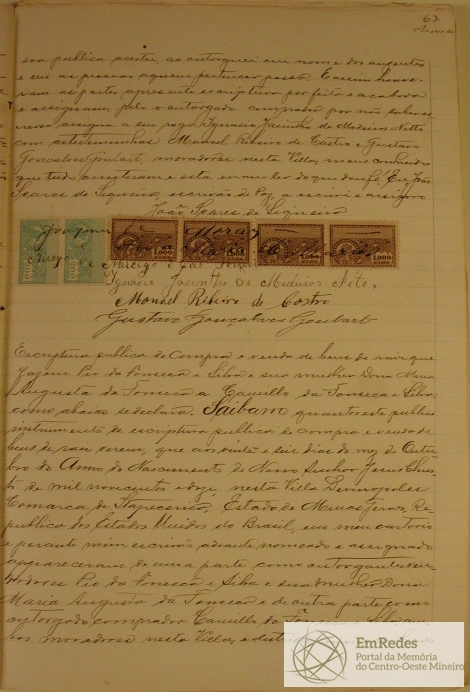 62
era publica aceitei, ao outorguei em nome dos auzentes
e em as pessoas a quem pertencer possa. E assim houve-
ram as partes a presente escriptura por feita e acabada
e assignam, pelo o outorgado comprador por não saber es-
crever assigna a seu rogo, Ignacio Jacintho de Medeiros Netto
com as testemunhas Manoel Ribeiro de Castro e Gustavo
Gonçalves Goulart, moradores nesta Villa, meus conhecidos
que tudo assistiram e esta ouviram ler do que dou fé. Eu João
Soares de Siqueira, escrivão de Paz, a escrevi e assigno
João Soares de Siqueira
Joaquim
1,000
1,000
1,000
Ignacio Jacintho de Medeiros Netto,
Manoel Ribeiro de Castro
Gustavo Gonçalves Goulart
Escriptura publica de Compra e venda de bens de raiz que
fazem Pio da Fonseca e Silva e sua mulher Dona Maria
Augusta da Fonseca a Camillo da Fonseca e Silva
como abaixo se declara. Saibam quantos este publico
instrumento de escriptura publica de compra e venda de
bens de raiz virem, que aos vinte e seis dias do mez de Outu-
bro do Anno do Nascimento de Nosso Senhor Jesus Chris-
to de mil novecentos e doze, nesta Villa Divinopoles
Comarca de Itapecerica, Estado de Minas Geraes, Re-
publica dos Estados Unidos do Brasil, em meu cartorio
e perante mim escrivão adiante nomeado e assignado
appareceram de uma parte como outorgantes ven-
dedores Pio da Fonseca e Silva e sua mulher Dona
Maria Augusta da Fonseca e de outra parte como
outorgado comprador Camillo da Fonseca e Silva
moradores nesta Villa, e
EmRedes
Portal da Memória
do Centro-Oeste Mineiro